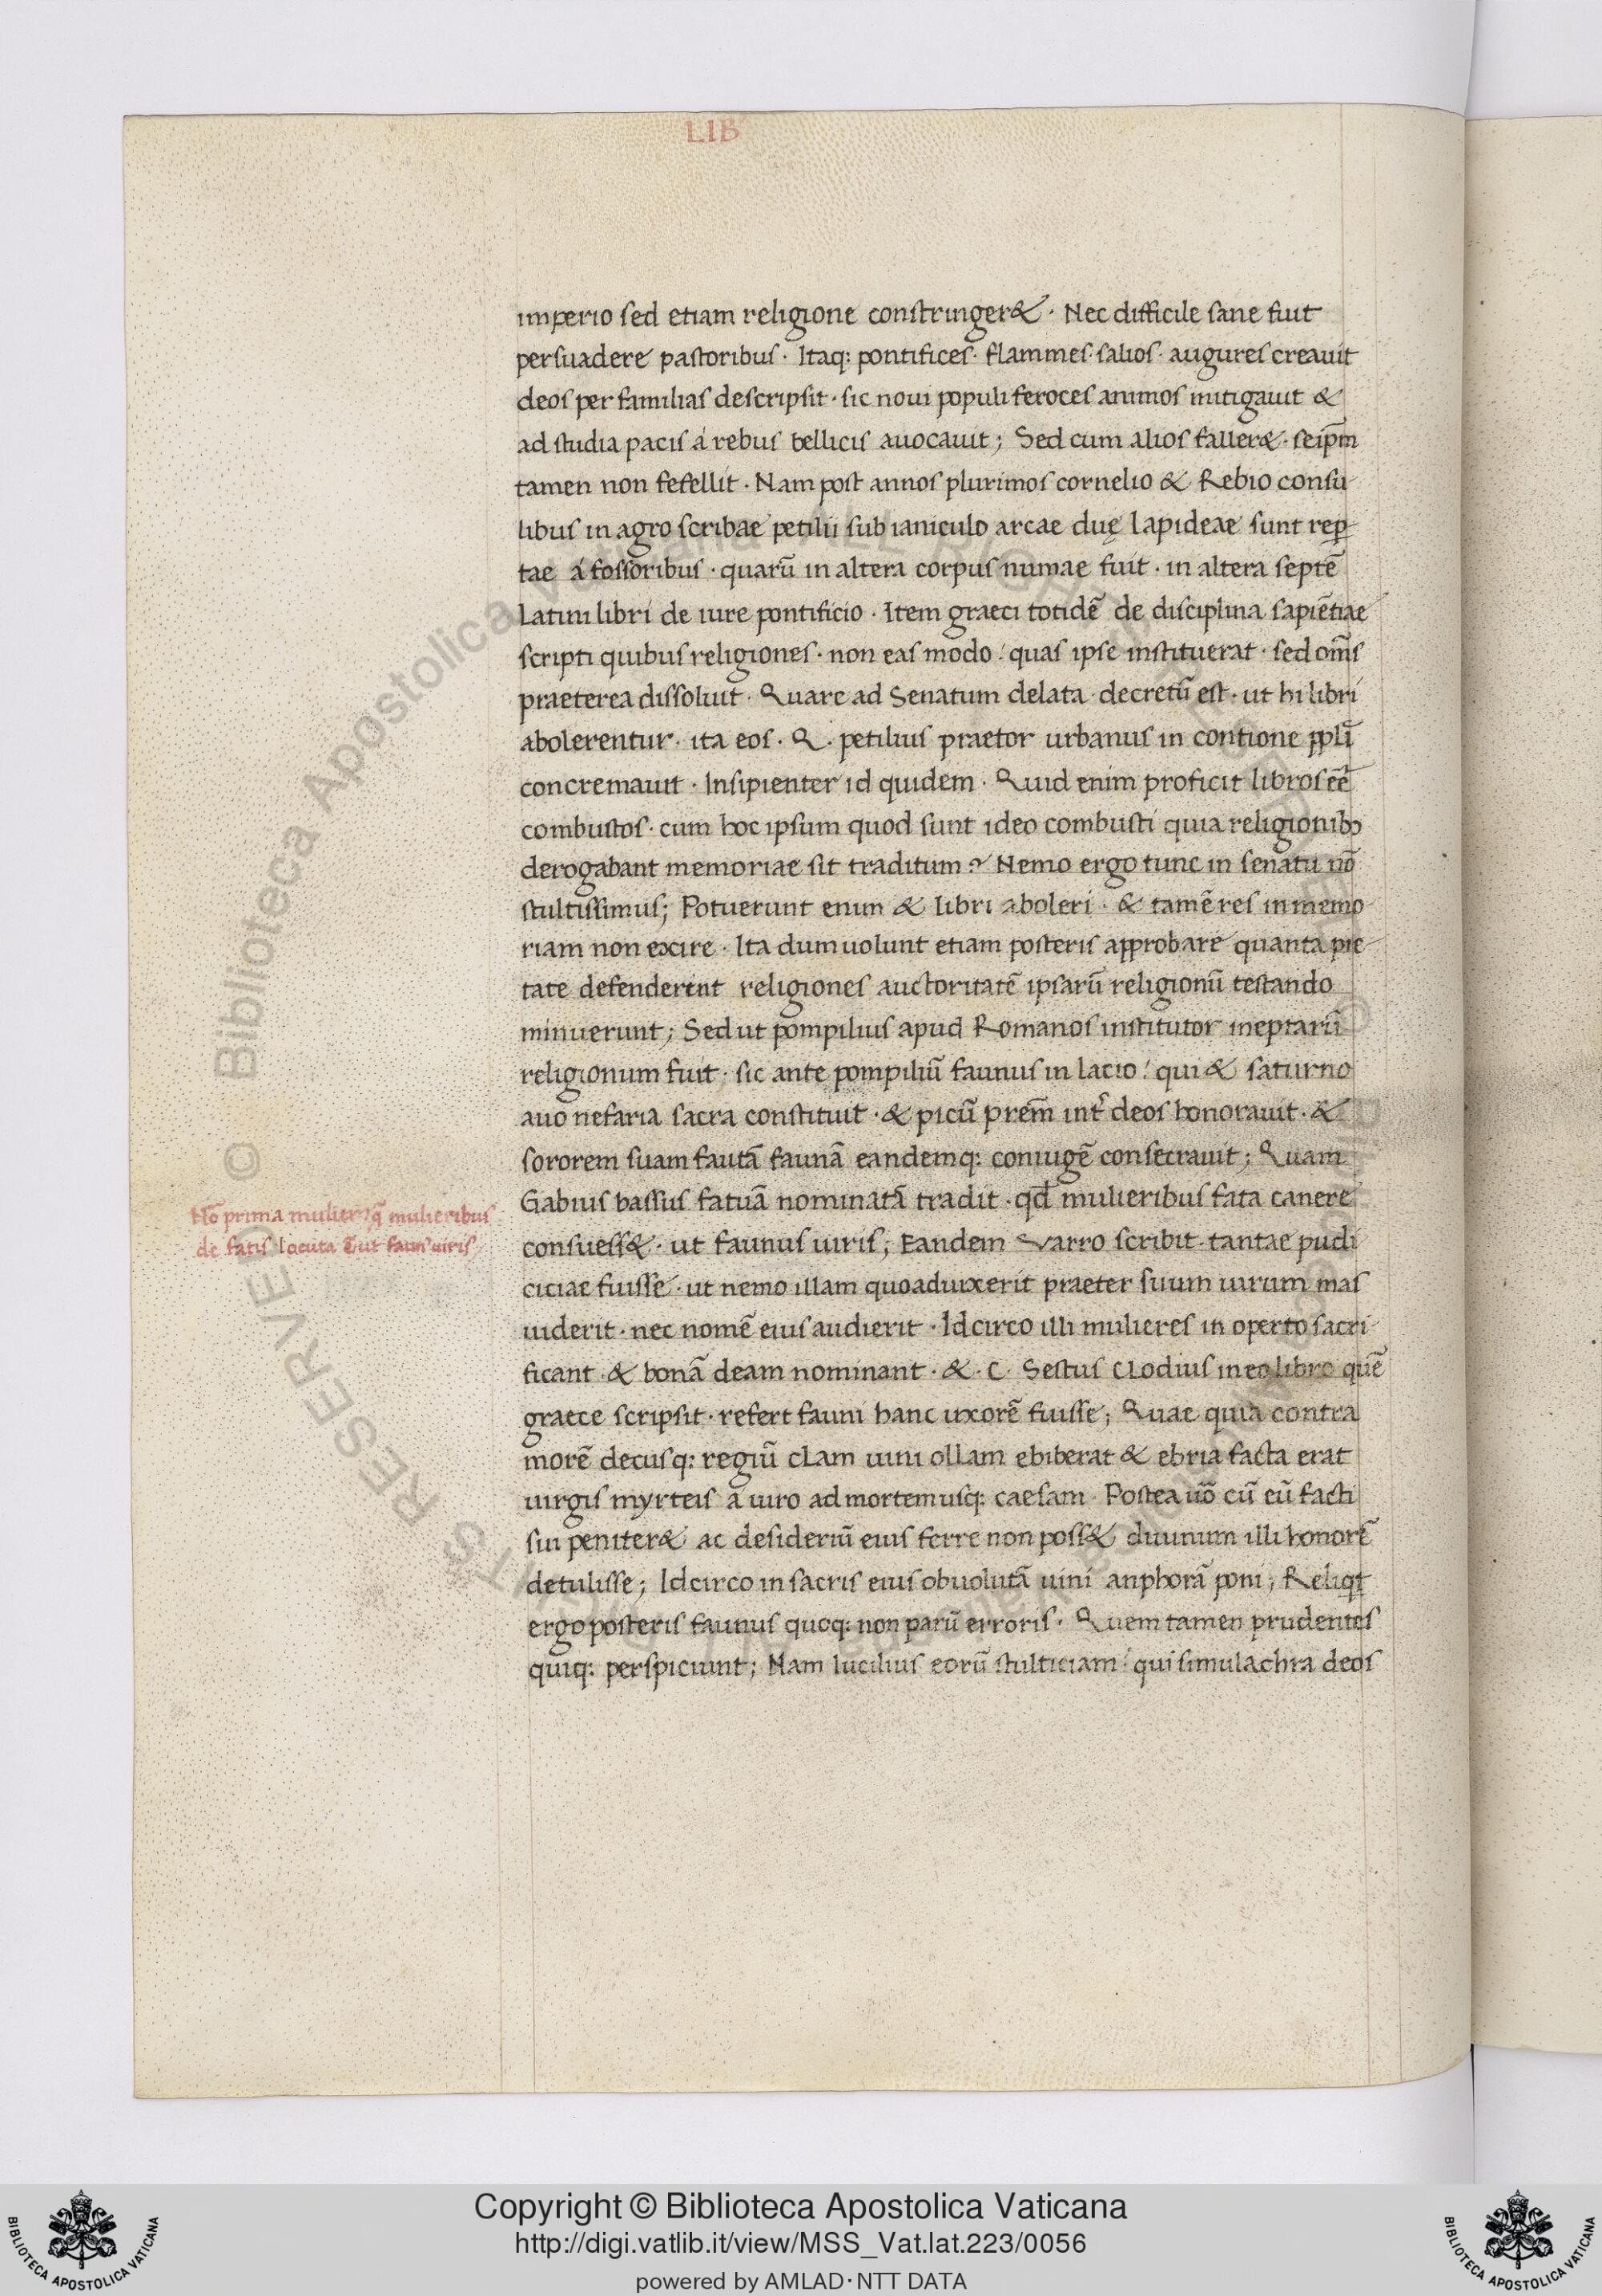 LIB
imperio sed etiam religione constringer& · Nec difficile sane fuit
persuadere pastoribus · Itaq: pontifices · flammes · salios · augures creauit
deos per familias descripsit · sic noui populi feroces animos mitigauit &
ad studia pacis á rebus bellicis auocauit; Sed cum alios faller& · seip̄m
tamen non fefellit · Nam post annos plurimos cornelio & Rebio consu
libus in agro scribae petilii sub ianiculo arcae duę lapideae sunt rep
tae á fossoribus · quarū in altera corpus numae fuit · in altera septē
Latini libri de iure pontificio · Item graeci totidē de disciplina sapiētiae
scripti quibus religiones · non eas modo · quas ipse instituerat · sed om̄s
praeterea dissoluit · Quare ad Senatum delata · decretū est · ut hi libri
abolerentur · ita eos · Q · petilius praetor urbanus in contione ppl̄i
concremauit · Insipienter id quidem · Quid enim proficit libros eē
combustos · cum hoc ipsum quod sunt ideo combusti quia religionib;
derogabant memoriae sit traditum? Nemo ergo tunc in senatu nō
stultissimus; Potuerunt enim & libri aboleri · & tamē res in memo
riam non exire · Ita dum uolunt etiam posteris approbare quanta pie
tate defenderint religiones auctoritatē ipsarū religionū testando
minuerunt; Sed ut pompilius apud Romanos institutor ineptarū
religionum fuit · sic ante pompiliū faunus in lacio · qui & saturno
auo nefaria sacra constituit · & picū prem̄ int̄ deos honorauit · &
sororem suam fautā faunā eandemq: coniugē consecrauit; Quam
Gabius bassus fatuā nominatā tradit · qd̄ mulieribus fata canere
consuess& · ut faunus uiris; Eandem Varro scribit · tantae pudi
ciciae fuisse · ut nemo illam quoad uixerit praeter suum uirum mas
uiderit · nec nomē eius audierit · Idcirco illi mulieres in operto sacri
ficant · & bonā deam nominant · & · C · Sestus Clodius in eo libro quē
graece scripsit · refert fauni hanc uxorē fuisse; Quae quia contra
morē decusq: regiū clam uini ollam ebiberat & ebria facta erat
uirgis myrteis á uiro ad mortem usq: caesam · Postea uō cū eū facti
sui peniter& ac desideriū eius ferre non poss& diuinum illi honorē
detulisse; Idcirco in sacris eius obuolutā uini anphorā poni; Reliqt
ergo posteris faunus quoq: non parū erroris · Quem tamen prudentes
quiq: perspiciunt; Nam lucilius eorū stulticiam · qui simulachra deos
Nō prima mulier q̄ mulieribus
de fatis locuta ē ut faun' uiris
Copyright © Biblioteca Apostolica Vaticana
http://digi.vatlib.it/view/MSS_Vat.lat.223/0056
powered by AMLAD·NTT DATA
BIBLIOTECA APOSTOLICA VATICANA
BIBLIOTECA APOSTOLICA VATICANA